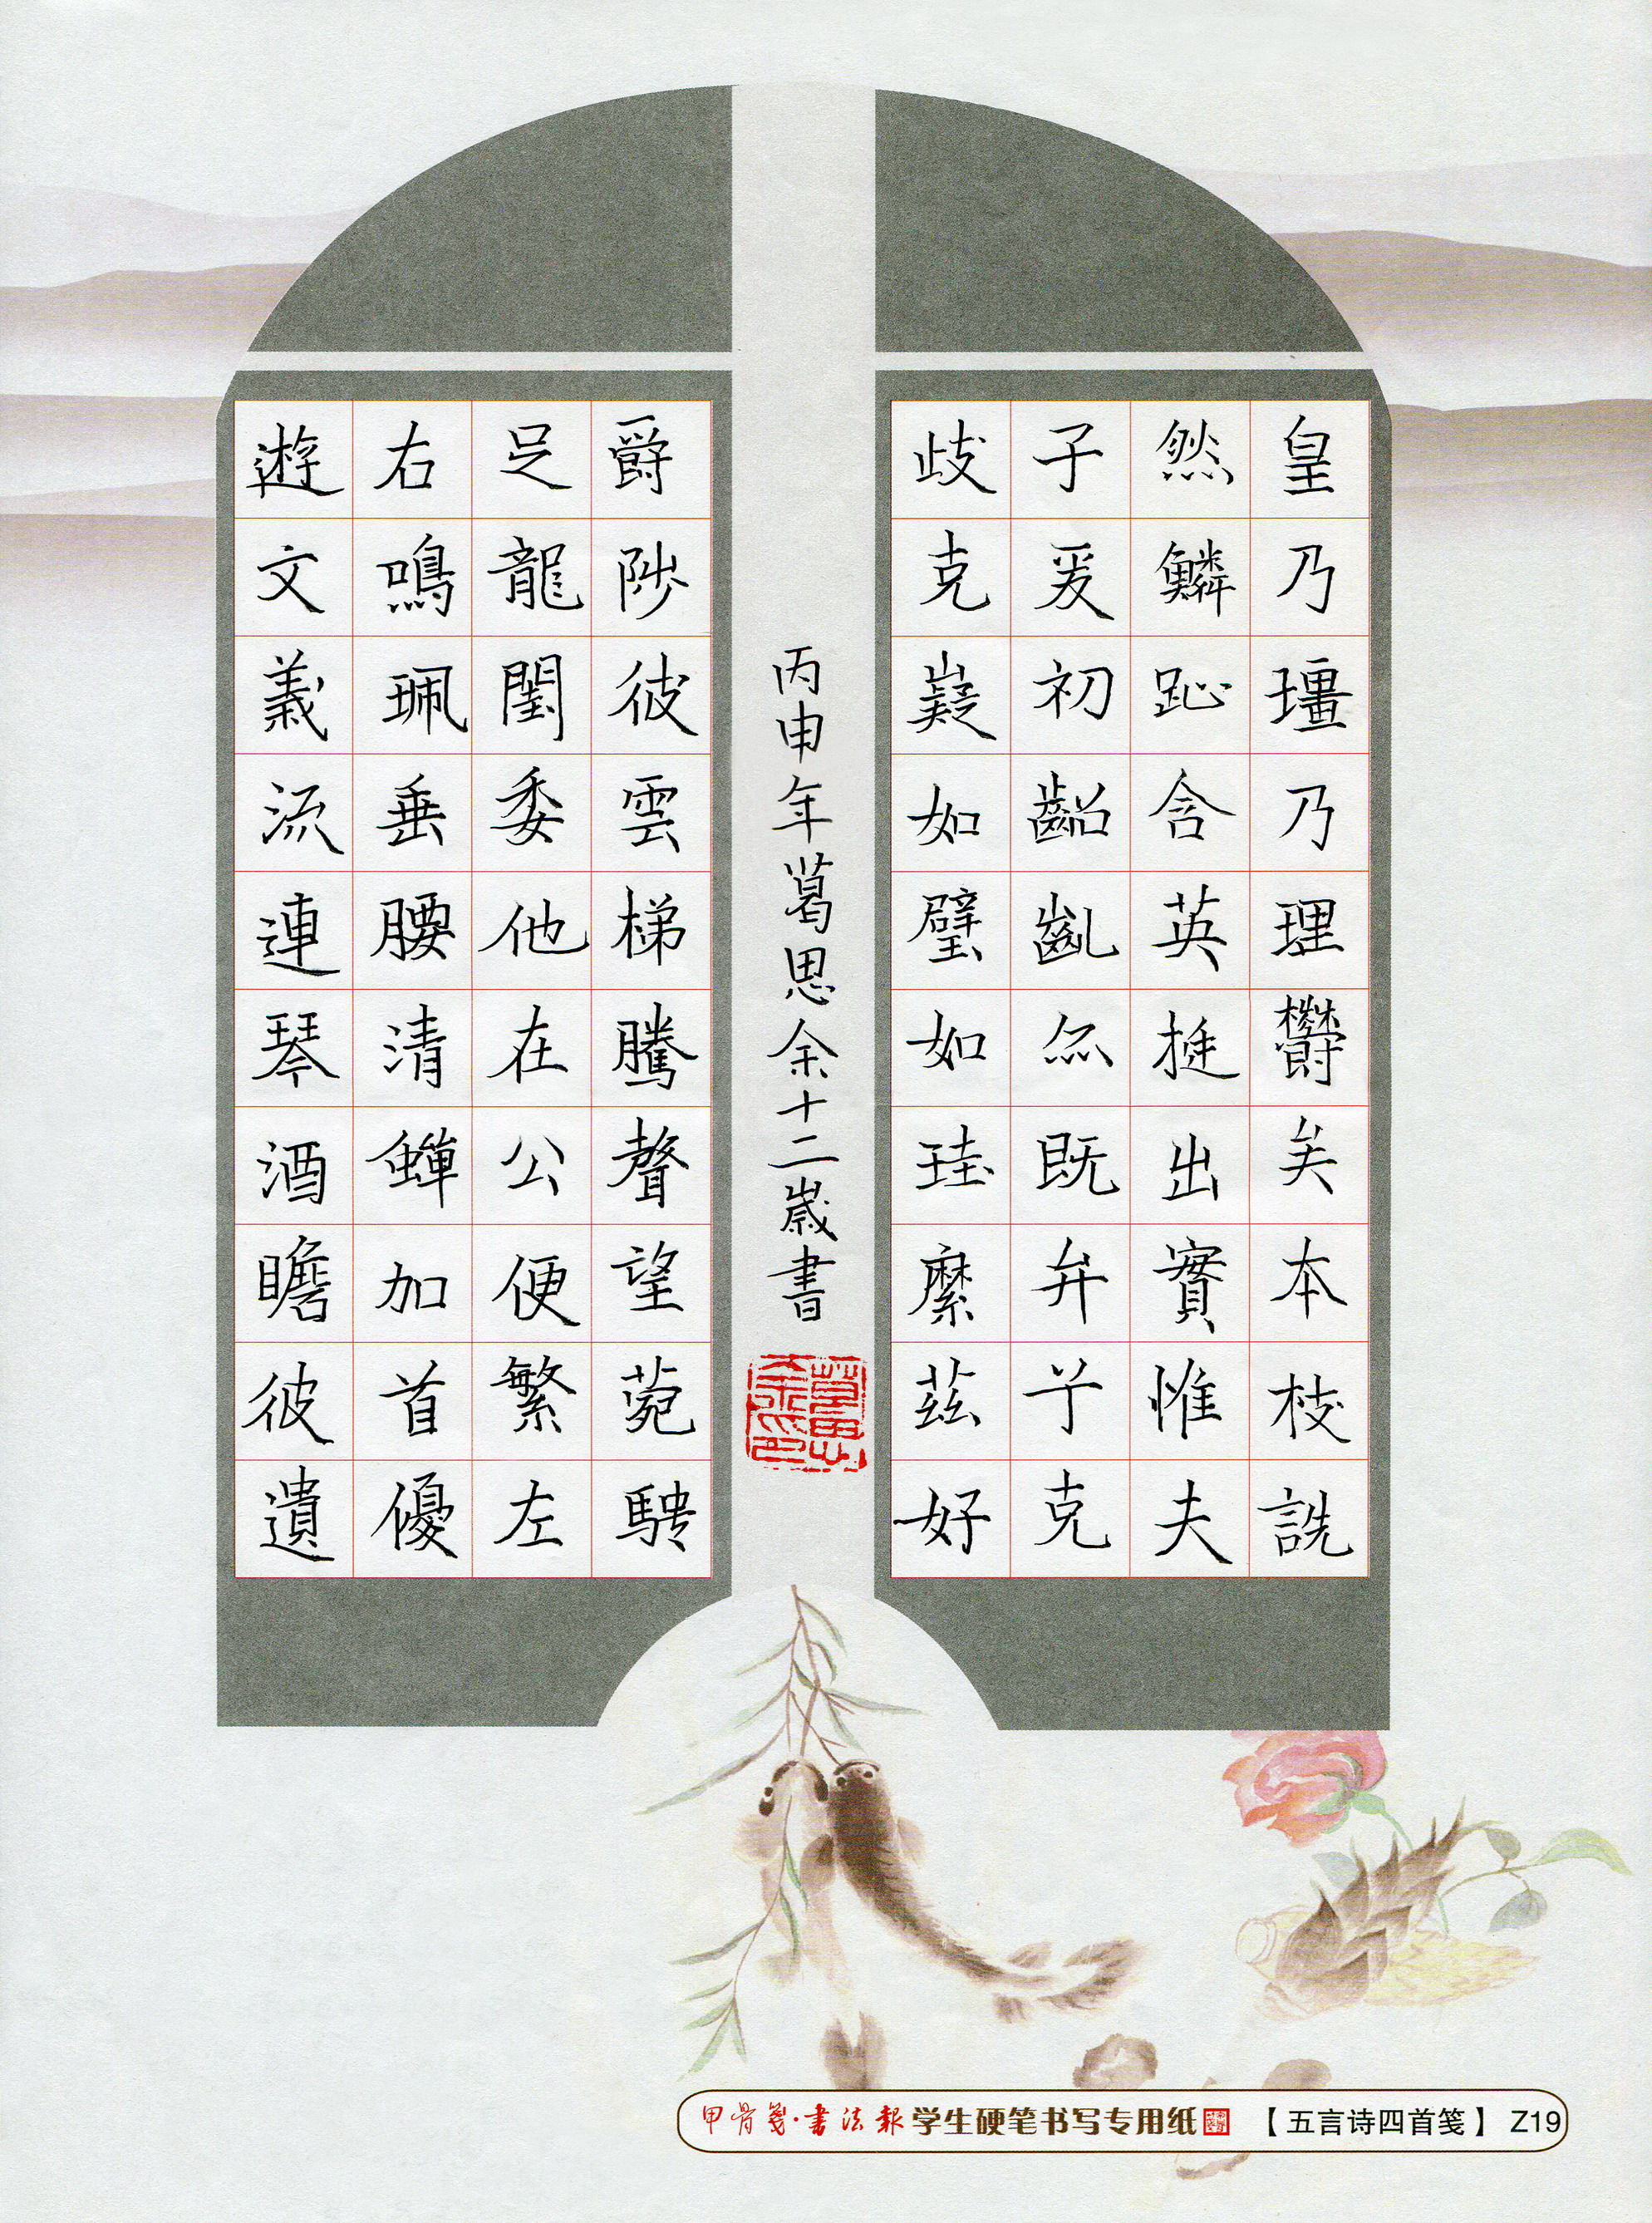 皇乃壃乃理欝矣本枝詵
然鱗趾含英挺出實惟夫
子爰初齠齓尒既弁亇克
歧克嶷如璧如珪縻茲好
丙申年葛思余十二嵗書
爵陟彼雲梯騰聲望菀騁
足龍閨委他在公便繁左
右鳴珮垂腰清蟬加首優
遊文義流連琴酒瞻彼遺
甲骨笺·書法報 学生硬笔书写专用纸 【五言诗四首笺】 Z19